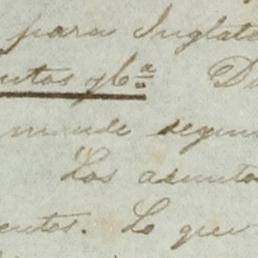 para Inglate
ntos y C.ª D
mande segun
Los asunto
entos. Lo que